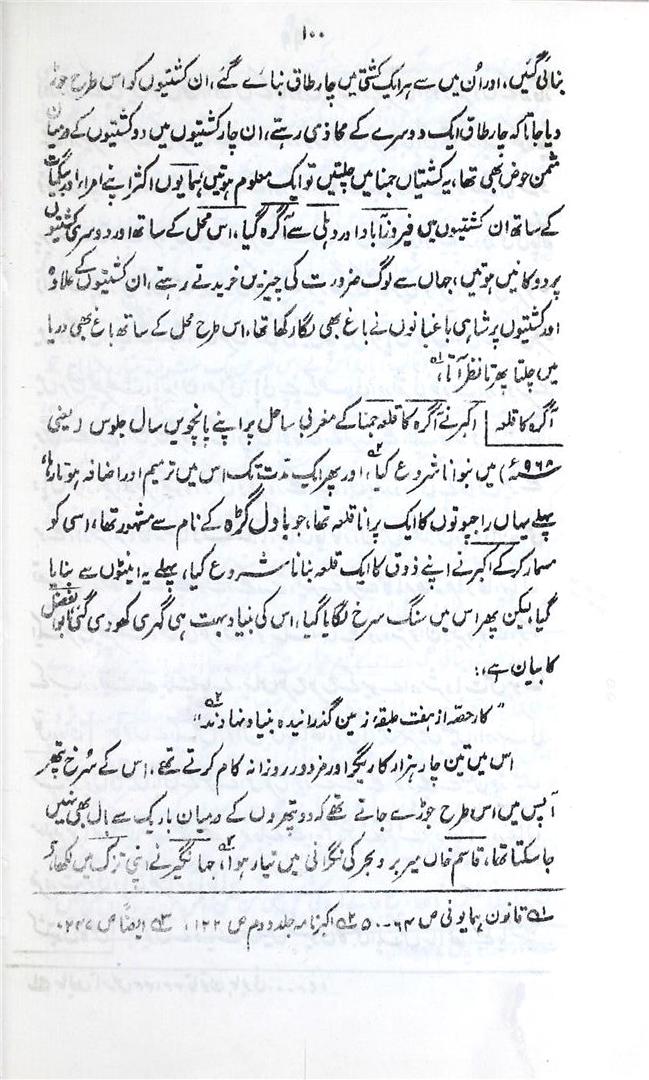 ۱۰۰
بنائی گئیں، اور اُن میں سے ہر ایک کشتی میں چار طاق بنائے گئے، ان کشتیوں کو اس طرح جوڑ
دیا جاتا کہ چار طاق ایک دوسرے کے محاذی رہتے، ان چار کشتیوں میں دو کشتیوں کے درمیان
مثمن حوض بھی تھا، یہ کشتیاں جمنا میں چلتیں تو ایک معلوم ہوتیں ہمایوں اکثر اپنے امراء اور بیگمات
کے ساتھ ان کشتیوں میں فیروزآباد اور دہلی سے آگرہ گیا، اس محل کے ساتھ اور دوسری کشتیوں
پر دوکانیں ہوتیں، جہاں سے لوگ ضرورت کی چیزیں خریدتے رہتے، ان کشتیوں کے علاوہ
اور کشتیوں پر شاہی باغبانوں نے باغ بھی لگا رکھا تھا، اس طرح محل کے ساتھ باغ بھی دریا
میں چلتا پھرتا نظر آتا،۱؎
آگرہ کا قلعہ | اکبر نے آگرہ کا قلعہ جمنا کے مغربی ساحل پر اپنے پانچویں سال جلوس (یعنی
۹۶۸ھ) میں بنوانا شروع کیا،۲؎ اور پھر ایک مدت تک اس میں ترمیم اور اضافہ ہوتا رہا،
پہلے یہاں راجپوتوں کا ایک پرانا قلعہ تھا، جو بادل گڑھ کے نام سے مشہور تھا، اسی کو
مسمار کر کے اکبر نے اپنے ذوق کا ایک قلعہ بنانا شروع کیا، پہلے یہ اینٹوں سے بنایا
گیا لیکن پھر اس میں سنگ سرخ لگایا گیا، اس کی بنیاد بہت ہی گہری کھودی گئی ابوالفضل
کا بیان ہے،:
"کار حصہ از ہفت طبقۂ زمین گذرانیدہ بنیاد نہادند"۲؎
اس میں تین چار ہزار کاریگر اور مزدور روزانہ کام کرتے تھے، اس کے سُرخ پتھر
آپس میں اس طرح جوڑے جاتے تھے کہ دو پتھروں کے درمیان باریک سے بال بھی نہیں
جا سکتا تھا، قاسم خاں میر بر و بحر کی نگرانی میں تیار ہوا،۳؎ جہانگیر نے اپنی تزک میں لکھا ہے
۱؎ قانون ہمایونی ص ۶۴-۵۰ ۲؎ اکبرنامہ جلد دوم ص ۱۲۲، ۳؎ ایضاً ص ۲۴۷،